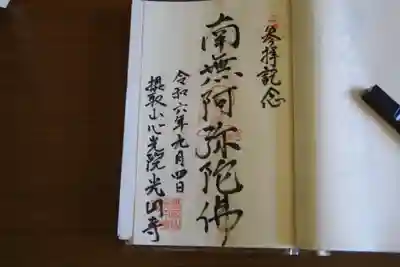 参拝記念
南無阿弥陀佛
令和六年九月四日
摂取山心光院光明寺